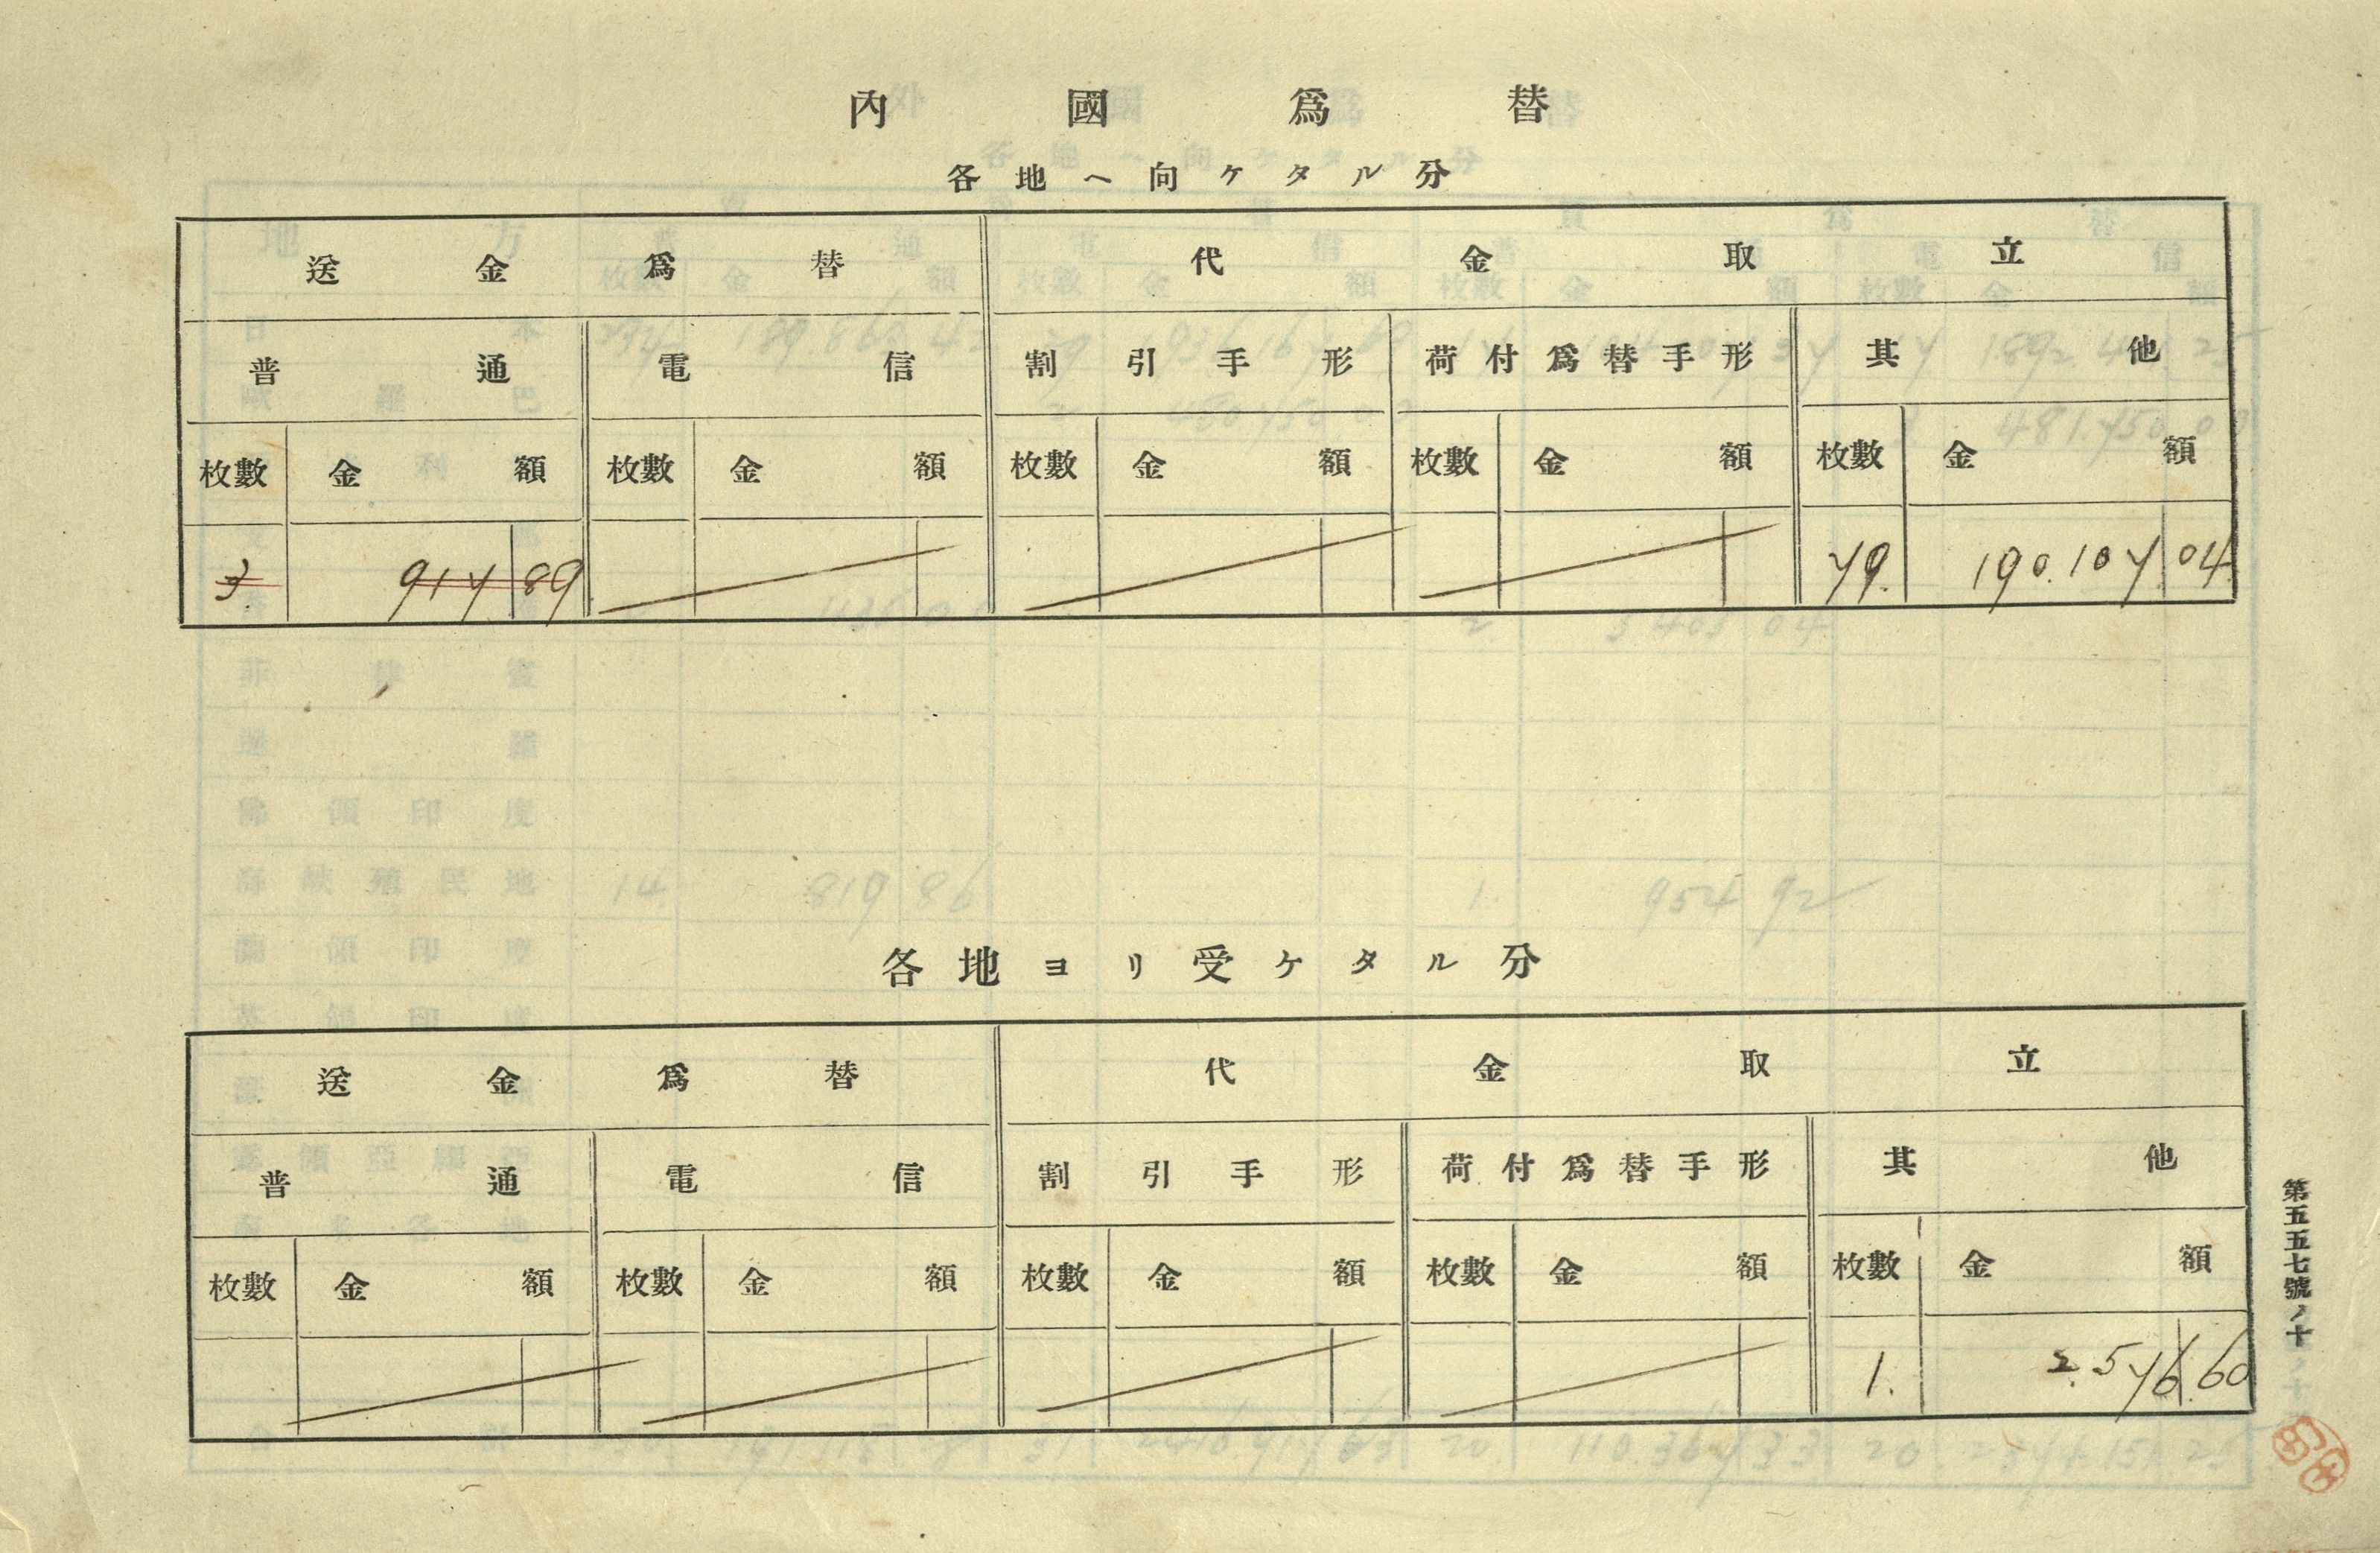 內國爲替
各地ヘ向ケタル分
送金爲替 代金取立
普通 電信 割引手形 荷付爲替手形 其他
枚數 金額 枚數 金額 枚數 金額 枚數 金額 枚數 金額
3. 917 89 79. 190.107.04
各地ヨリ受ケタル分
送金爲替 代金取立
普通 電信 割引手形 荷付爲替手形 其他
枚數 金額 枚數 金額 枚數 金額 枚數 金額 枚數 金額
1. 2.576.60
第五五七號ノ十